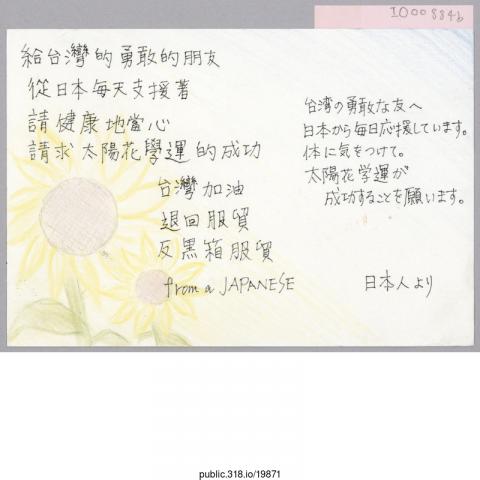 I000884b
給台灣的勇敢的朋友
從日本每天支援著
請健康地當心
請求太陽花學運的成功
台灣加油
退回服貿
反黑箱服貿
from a JAPANESE
台湾の勇敢な友へ
日本から毎日応援しています。
体に気をつけて。
太陽花学運が
成功することを願います。
日本人より
public.318.io/19871